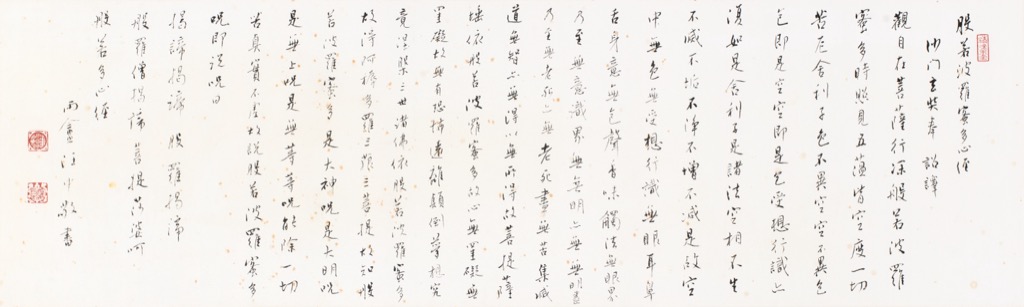 般若波羅蜜多心經
沙門玄奘奉 詔譯
觀自在菩薩行深般若波羅
蜜多時照見五蘊皆空度一切
苦厄舍利子色不異空空不異色
色即是空空即是色受想行識亦
復如是舍利子是諸法空相不生
不滅不垢不淨不增不減是故空
中無色無受想行識無眼耳鼻
舌身意無色聲香味觸法無眼界
乃至無意識界無無明亦無無明盡
乃至無老死亦無老死盡無苦集滅
道無智亦無得以無所得故菩提薩
埵依般若波羅蜜多故心無罣礙無
罣礙故無有恐怖遠離顛倒夢想究
竟涅槃三世諸佛依般若波羅蜜多
故得阿耨多羅三藐三菩提故知般
若波羅蜜多是大神咒是大明咒
是無上咒是無等等咒能除一切
苦真實不虛故說般若波羅蜜多
咒即說咒曰
揭諦揭諦 般羅揭諦
般羅僧揭諦 菩提薩婆訶
般若多心經
敬書